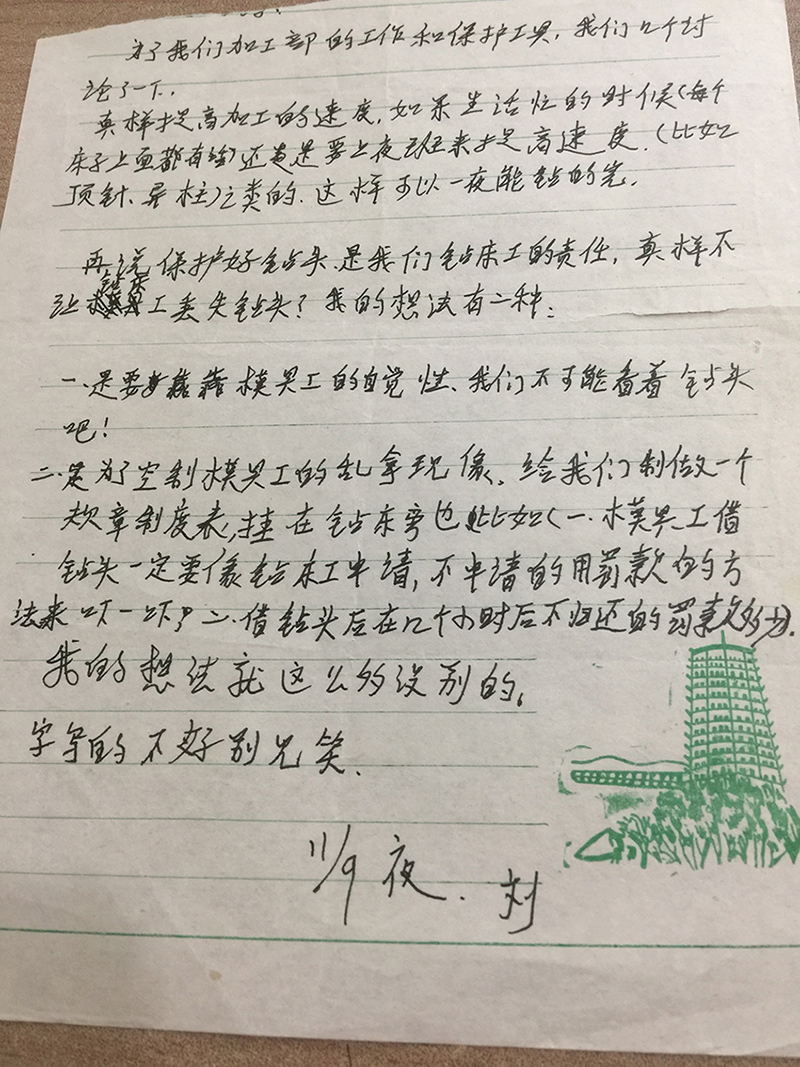 为了我们加工部的工作和保护工具，我们几个讨
论了一下，
真样提高加工的速度，如果生活忙的时候（每个
床子上面都有给）还是要上夜班来提高速度．（比如
顶针、导柱）之类的．这样可以一夜能钻的完．
再说保护好钻头．是我们钻床工的责任，真样不
让模具工丢失钻头？我的想法有二种：
一．是要靠模具工的自觉性、我们不可能看着钻头
吧！
二．是为了空制模具工的乱拿现像、给我们制做一个
规章制度表，挂在钻床旁也比如（一．模具工借
钻头一定要像钻床工申请，不申请的用罚款的方
法来吓一吓，二．借钻头后在几个小时后不归还的罚款多少．
我的想法就这么多没别的，
字写的不好别见笑．
11/9夜．刘